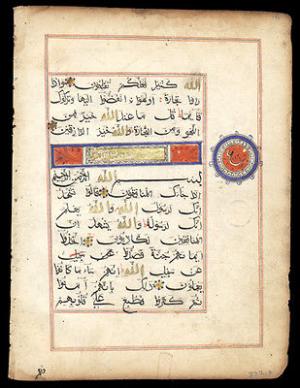 الله كثيرا لعلكم تفلحون واذا
راوا تجارة او لهوا انفضوا اليها وتركوك
قائما قل ما عند الله خير من
اللهو ومن التجارة والله خير الرازقين
بسم الله الرحمن الرحيم
اذا جاءك المنافقون قالوا نشهد
انك لرسول الله والله يعلم
انك لرسوله والله يشهد ان
المنافقين لكاذبون اتخذوا
ايمانهم جنة فصدوا عن
عن سبيل الله انهم ساء ما كانوا
يعملون ذلك بانهم امنوا
ثم كفروا فطبع على قلوبهم